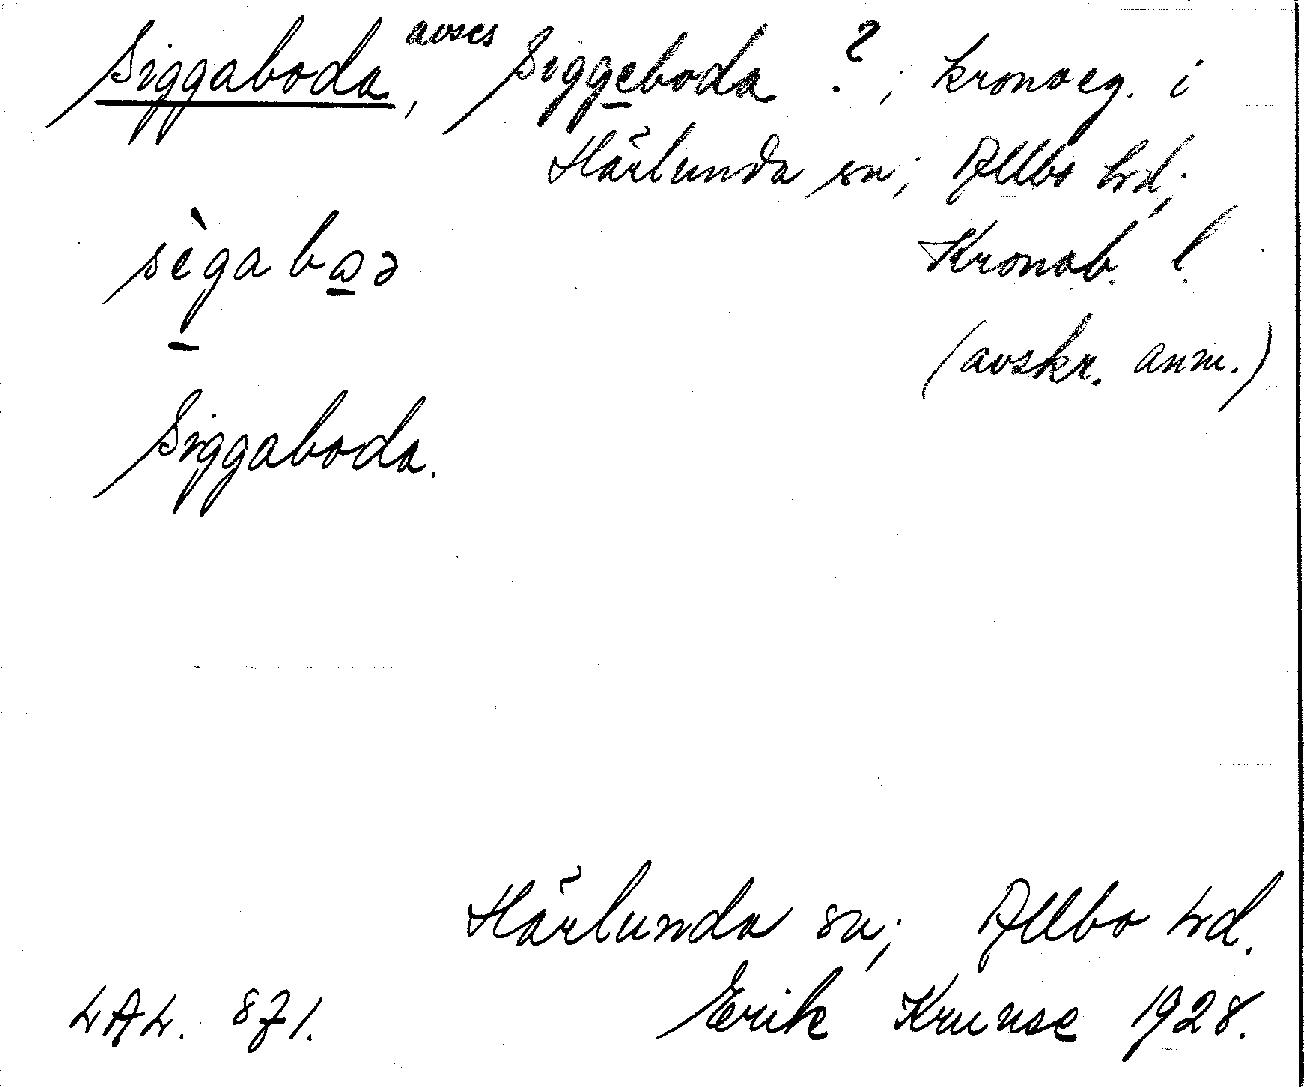 Siggaboda, avses Siggeboda ? ; kronoeg. i
Härlunda sn; Allbo hd;
Kronob. l.
(avskr. anm.)
sègaba̲ə
Siggaboda.
Härlunda sn; Allbo hd.
LAL. 871. Erik Kruuse 1928.